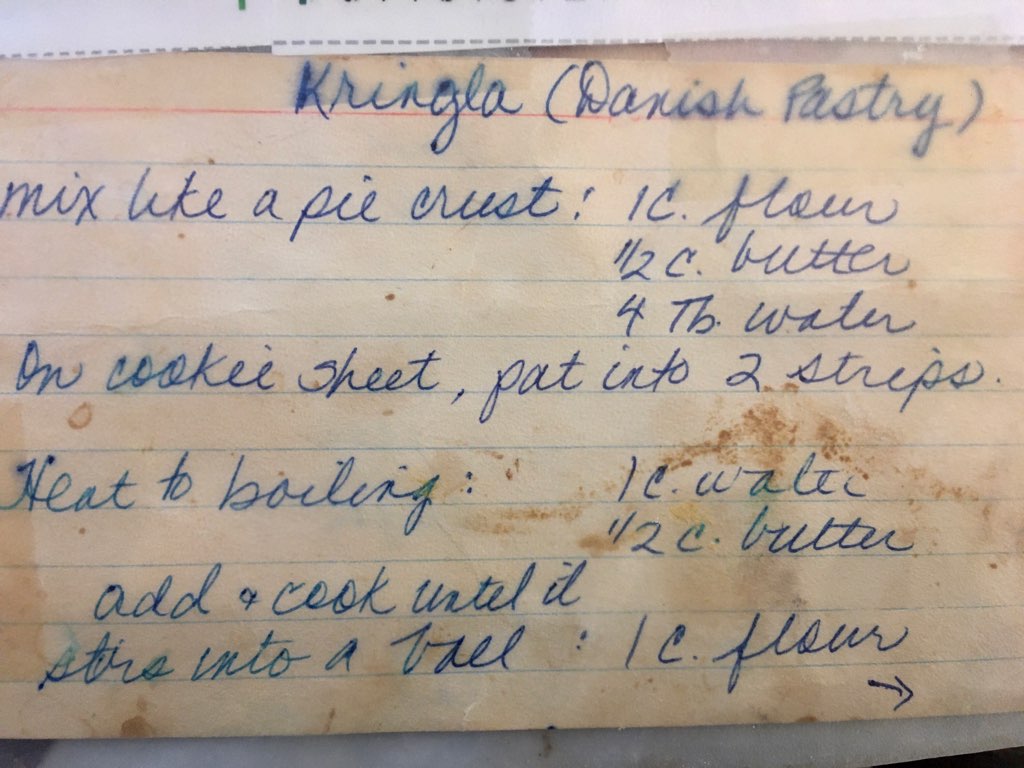 Kringla (Danish Pastry)
mix like a pie crust: 1 c. flour
1/2 c. butter
4 Tb. water
On cookie sheet, pat into 2 strips.
Heat to boiling: 1 c. water
1/2 c. butter
add + cook until it
stirs into a ball : 1 c. flour
→